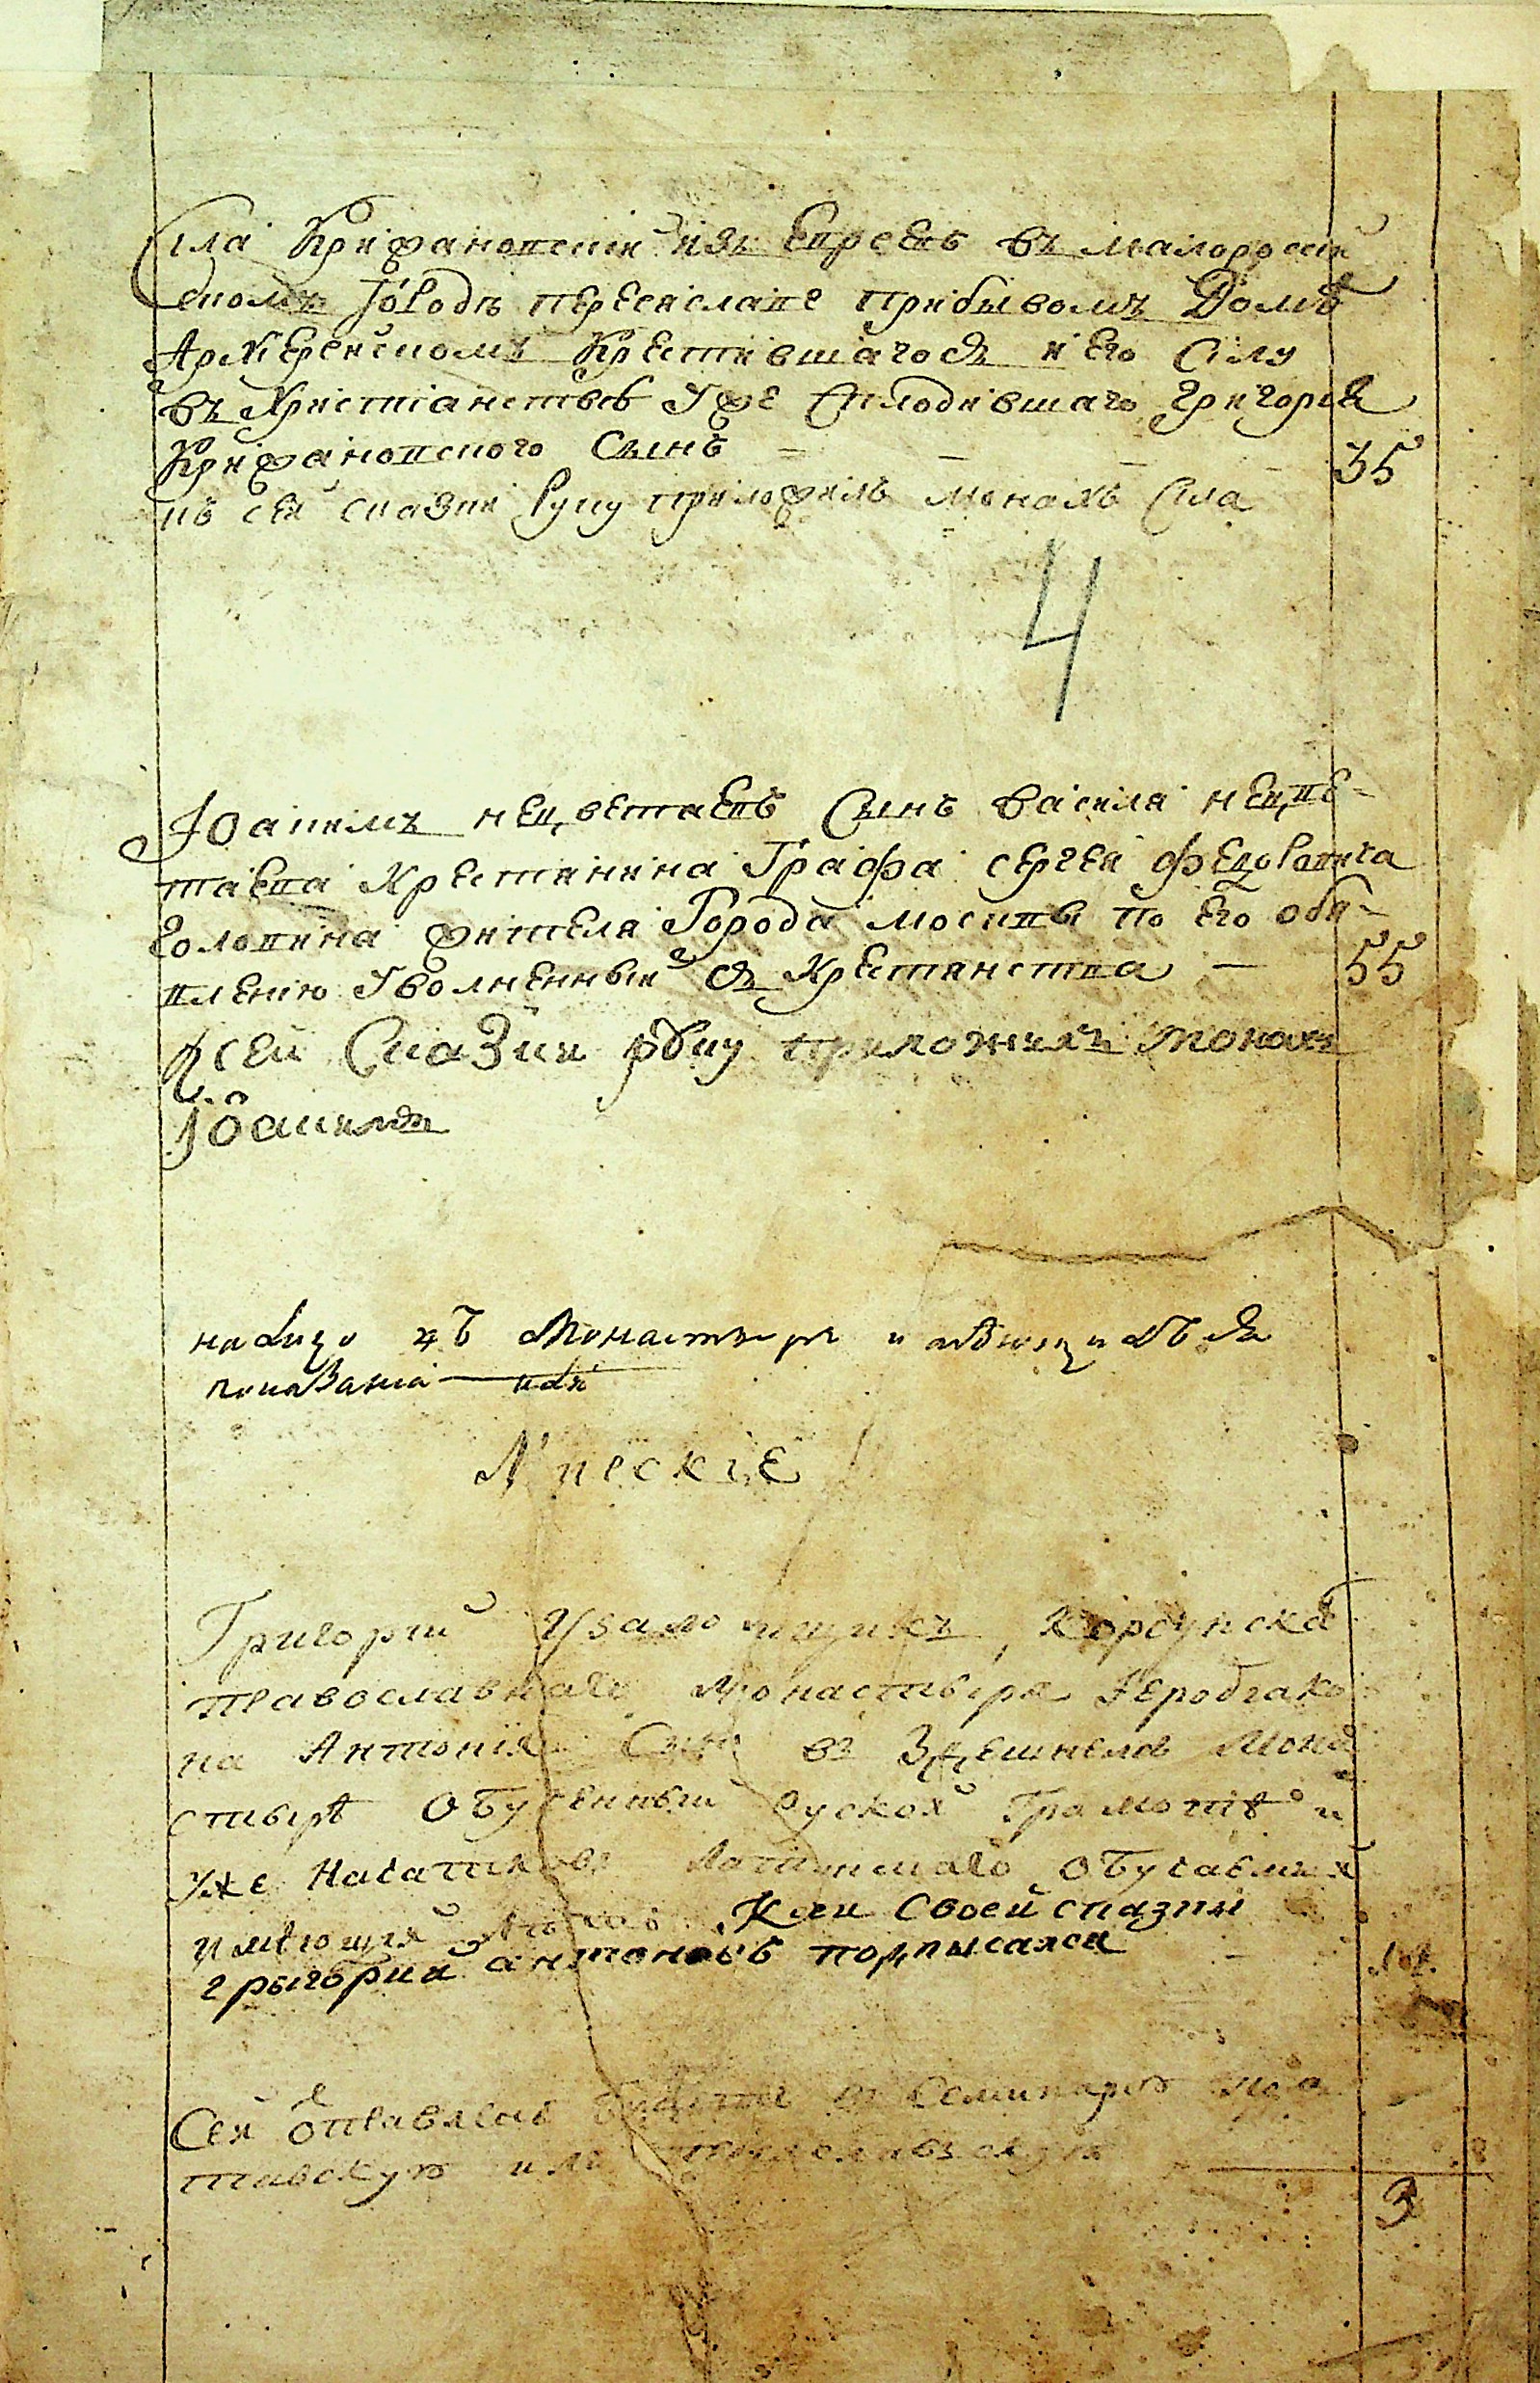 Сіла Крижановский изъ Евреевъ въ малороссій
скомъ Городѣ переяславе прибывомъ Домѣ
Архіерейскомъ Крестившагося и его Силу
въ Христіанствѣ Уже Сплодившаго Григорія
Крижановского Сынъ 35
къ сей сказки Руку приложилъ монахъ Сила
4
Іоакимъ нецветаевъ Сынъ василя нецве-
таева Крестянина Графа сергея федоровича
Головина жителя Города москвы по его объя-
влению Уволненный съ Крестянства 55
К сей Сказки руку приложилъ монахъ
Іоакимъ
на лицо въ Монастыре и
показаніа
Мирскіе
Григорий Корсунска
православнаго Монастыря Іеродіако
на Антонія Сынъ въ Здешнемъ Мона
стырѣ Обученный Руской Грамотѣ и
уже Начатковъ Латинскаго Обучавшійся
имѣющия К сей Своей сказки
грыгорий антоновъ подпысался
Сей отправленъ въ Семинарію
или переяславскую
3